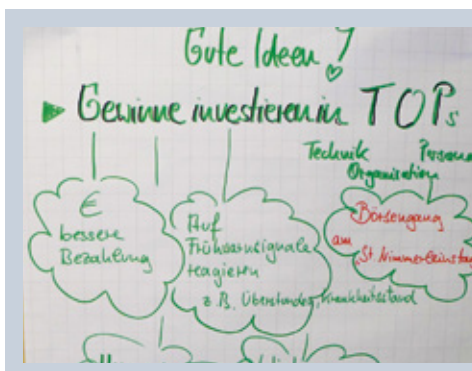 Gute Ideen!
▶ Gewinne investieren in TOPs
Technik
Organisation
Persona
€
bessere
Bezahlung
Auf
Frühwarnsignale
reagieren
z.B. Überstunden, Krankheitsstand
Börsengang
am
St. Nimmerleinstag